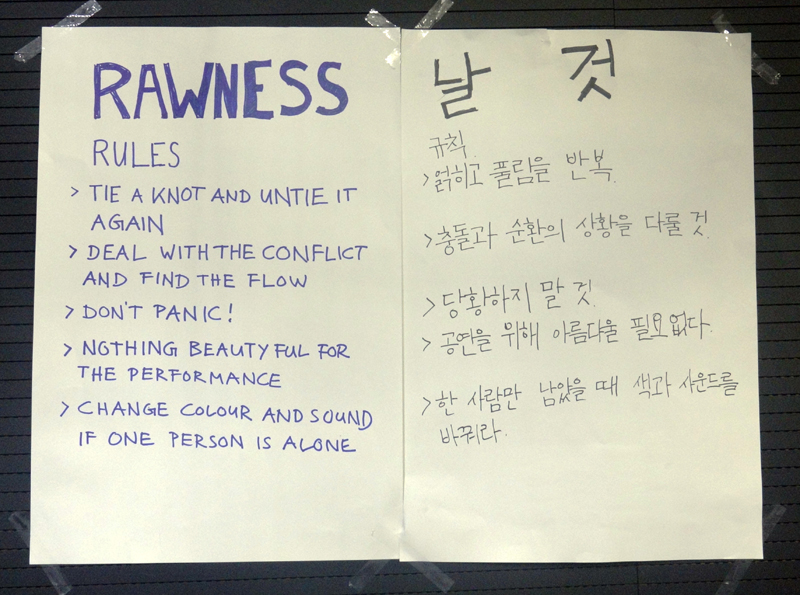 RAWNESS
RULES
> TIE A KNOT AND UNTIE IT
AGAIN
> DEAL WITH THE CONFLICT
AND FIND THE FLOW
> DON'T PANIC!
> NOTHING BEAUTYFUL FOR
THE PERFORMANCE
> CHANGE COLOUR AND SOUND
IF ONE PERSON IS ALONE
날 것
규칙.
> 얽히고 풀림을 반복.
> 충돌과 순환의 상황을 다룰 것.
> 당황하지 말 것.
> 공연을 위해 아름다울 필요없다.
> 한 사람만 남았을 때 색과 사운드를
바꿔라.